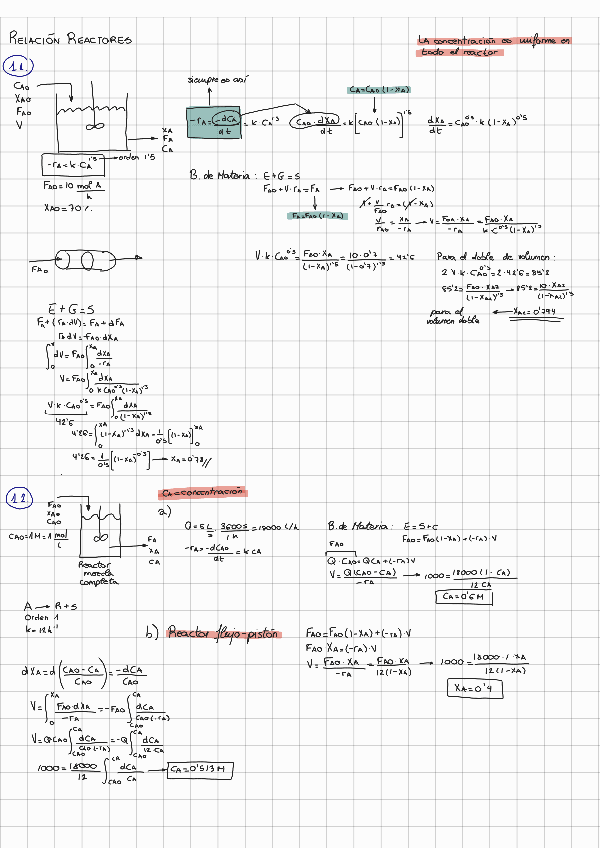 RELACIÓN REACTORES
LA concentración es uniforme en
todo el reactor
1.1
CA0
XA0
FA0
V
XA
FA
CA
-rA = k·CA^1'5 → orden 1'5
FA0 = 10 mol A / h
XA0 = 70 %
siempre es así
-rA = -dCA/dt = k·CA^1'5
CA = CA0 (1-XA)
CA0·dXA/dt = k[CA0(1-XA)]^1'5
dXA/dt = CA0^0'5·k(1-XA)^1'5
B. de Materia: E+G=S
FA0 + V·rA = FA → FA0 + V·rA = FA0(1-XA)
FA = FA0(1-XA)
1 + V/FA0 rA = (1-XA)
V/FA0 = XA/-rA → V = FA0·XA/-rA = FA0·XA/k C^0'5(1-XA)^1'5
FA0
V·k·CA0^0'5 = FA0·XA/(1-XA)^1'5 = 10·0'7/(1-0'7)^1'5 = 42'6
Para el doble de volumen:
2·V·k·CA0^0'5 = 2·42'6 = 85'2
85'2 = FA0·XA2/(1-XA)^1'5 → 85'2 = 10·XA2/(1-XA2)^1'5
para el volumen doble ← XA2 = 0'794
E+G=S
FA + (rA·dV) = FA + dFA
rA dV = -FA0·dXA
∫0^V dV = FA0 ∫0^XA dXA/-rA
V = FA0 ∫0^XA dXA/k CA0^0'5(1-XA)^1'5
V·k·CA0^0'5 = FA0 ∫0^XA dXA/(1-XA)^1'5
42'6
4'26 = ∫0^XA (1-XA)^-1'5 dXA = 1/0'5 [(1-XA)]0^XA
4'26 = 1/0'5 [(1-XA)^0'5] → XA = 0'78//
1.2
CA = concentración
FA0
XA0
CA0
CA0 = 1M = 1 mol/L
FA
XA
CA
Reactor
mezcla
completa
a)
Q = 5 L/s · 3600 s/1 h = 18000 L/h
-rA = -dCA0/dt = k CA
B. de Materia: E=S+C
FA0 = FA0(1-XA) + (-rA)·V
FA0
Q·CA0 = Q CA + (-rA)V
V = Q(CA0-CA)/-rA → 1000 = 18000(1-CA)/12 CA
CA = 0'6 M
A → R+S
Orden 1
k = 12 h^-1
b) Reactor flujo-pistón
FA0 = FA0(1-XA) + (-rA)·V
FA0 XA = (-rA)·V
V = FA0·XA/-rA = FA0·XA/12(1-XA) → 1000 = 18000·1·XA/12(1-XA)
XA = 0'4
dXA = d(CA0-CA/CA0) = -dCA/CA0
V = ∫0^XA FA0·dXA/-rA = -FA0 ∫CA0^CA dCA/CA0(-rA)
V = Q·CA0 ∫CA0^CA dCA/CA0(-rA) = -Q ∫CA0^CA dCA/12 CA
1000 = 18000/12 ∫CA0^CA dCA/CA → CA = 0'513 M